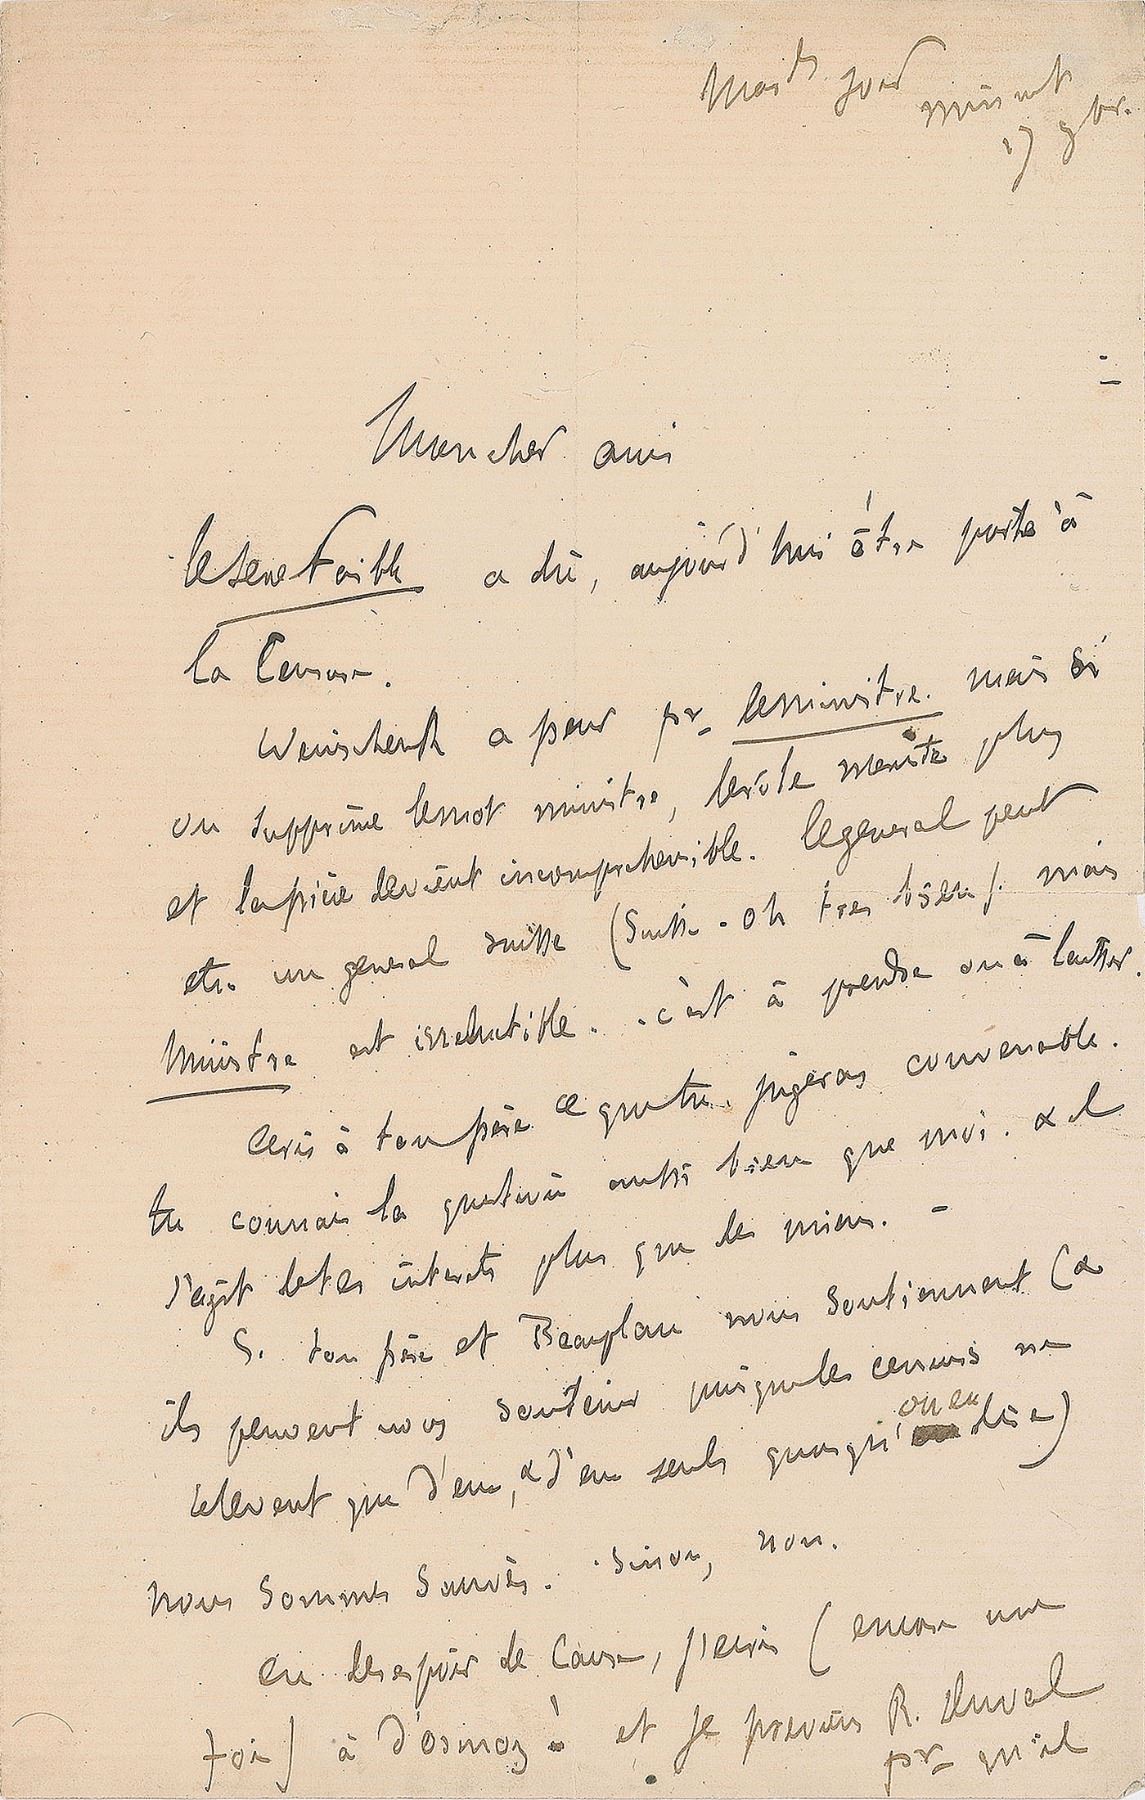 Mardi soir
minuit
17 9br.
Mon cher ami
le sexe Faible a dû, aujourd'hui être porté à
la Censure.
Weinschenk a peur pr le ministre. mais si
on supprime le mot ministre, le rôle n'existe plus
et la pièce devient incompréhensible. le general peut
etre un general suisse (Suisse - oh tres bien). mais
Ministre est irreductible. - c'est à prendre ou à laisser.
Ecris à ton père ce que tu jugeras convenable.
tu connais la question aussi bien que moi. & il
s'agit de tes interets plus que des miens. -
Si ton père et Beauplan nous soutiennent (&
ils peuvent nous soutenir puisque les censeurs ne
relevent que d'eux, & d'eux seuls quoiqu'on en dise)
nous sommes sauvés. Sinon, non.
en desespoir de Cause, j'ecris (encore une
fois) à d'osmoy ! et je previens R. Duval
pr qu'il